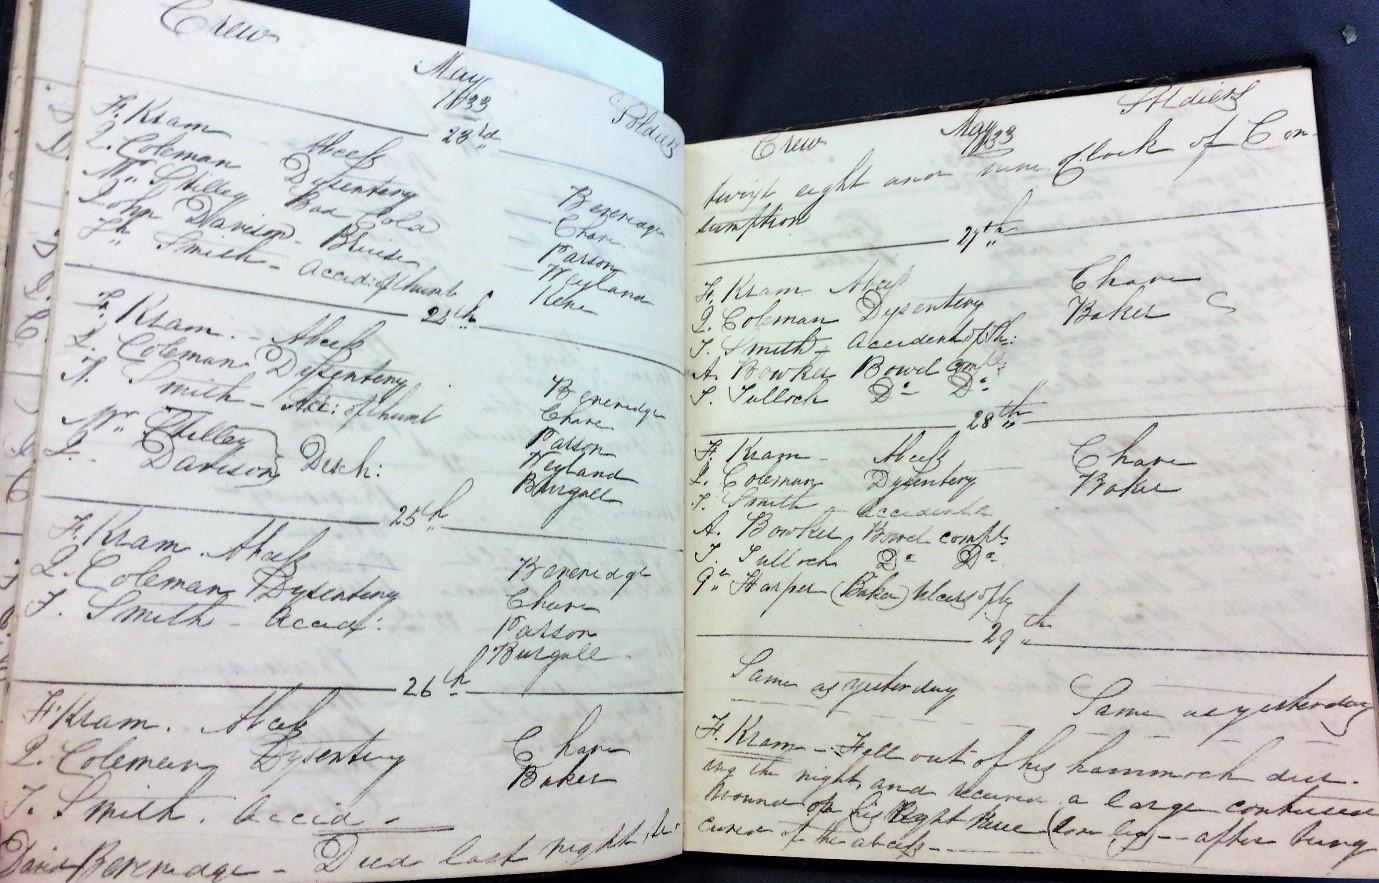 Crew
May
1833
Soldiers
23rd
H. Kram Abcess
Q. Coleman Dysentery
Mr. Stilley Bad Cold
John Davison - Bruise
Th. Smith - accid: of thumb
Beveridge
Chave
Parson
Weyland
Kene
24th
H. Kram - Abcess
Q. Coleman Dysentery
T. Smith - Acc: of thumb
Mr. Stilley
Q. Davison Disch:
Beveridge
Chave
Parson
Weyland
Burgall
25th
H. Kram. Abcess
Q. Coleman Dysentery
T. Smith - accid:
Beveridge
Chave
Parson
Burgall
26th
H. Kram. Abcess
Q. Coleman Dysentery
T. Smith. accid -
Chave
Baker
David Beveridge - Died last night, be-
Crew
May
1833
Soldiers
twixt eight and nine O'Clock of Con-
sumption
27th
H. Kram Abcess
Q. Coleman Dysentery
T. Smith - accident of th:
A. Bowker Bowel Compt.
T. Tulloch Do Do
Chave
Baker
28th
H. Kram - Abcess
Q. Coleman Dysentery
T. Smith - accident
A. Bowker Bowel compt.
T. Tulloch Do Do
Harper (Baker) Ulcers of leg
Chave
Baker
29th
Same as yesterday
Same as yesterday
H. Kram - Fell out of his hammock dur-
ing the night, and received a large contused
wound on his Right knee leg) - after being
cured of the abcess -